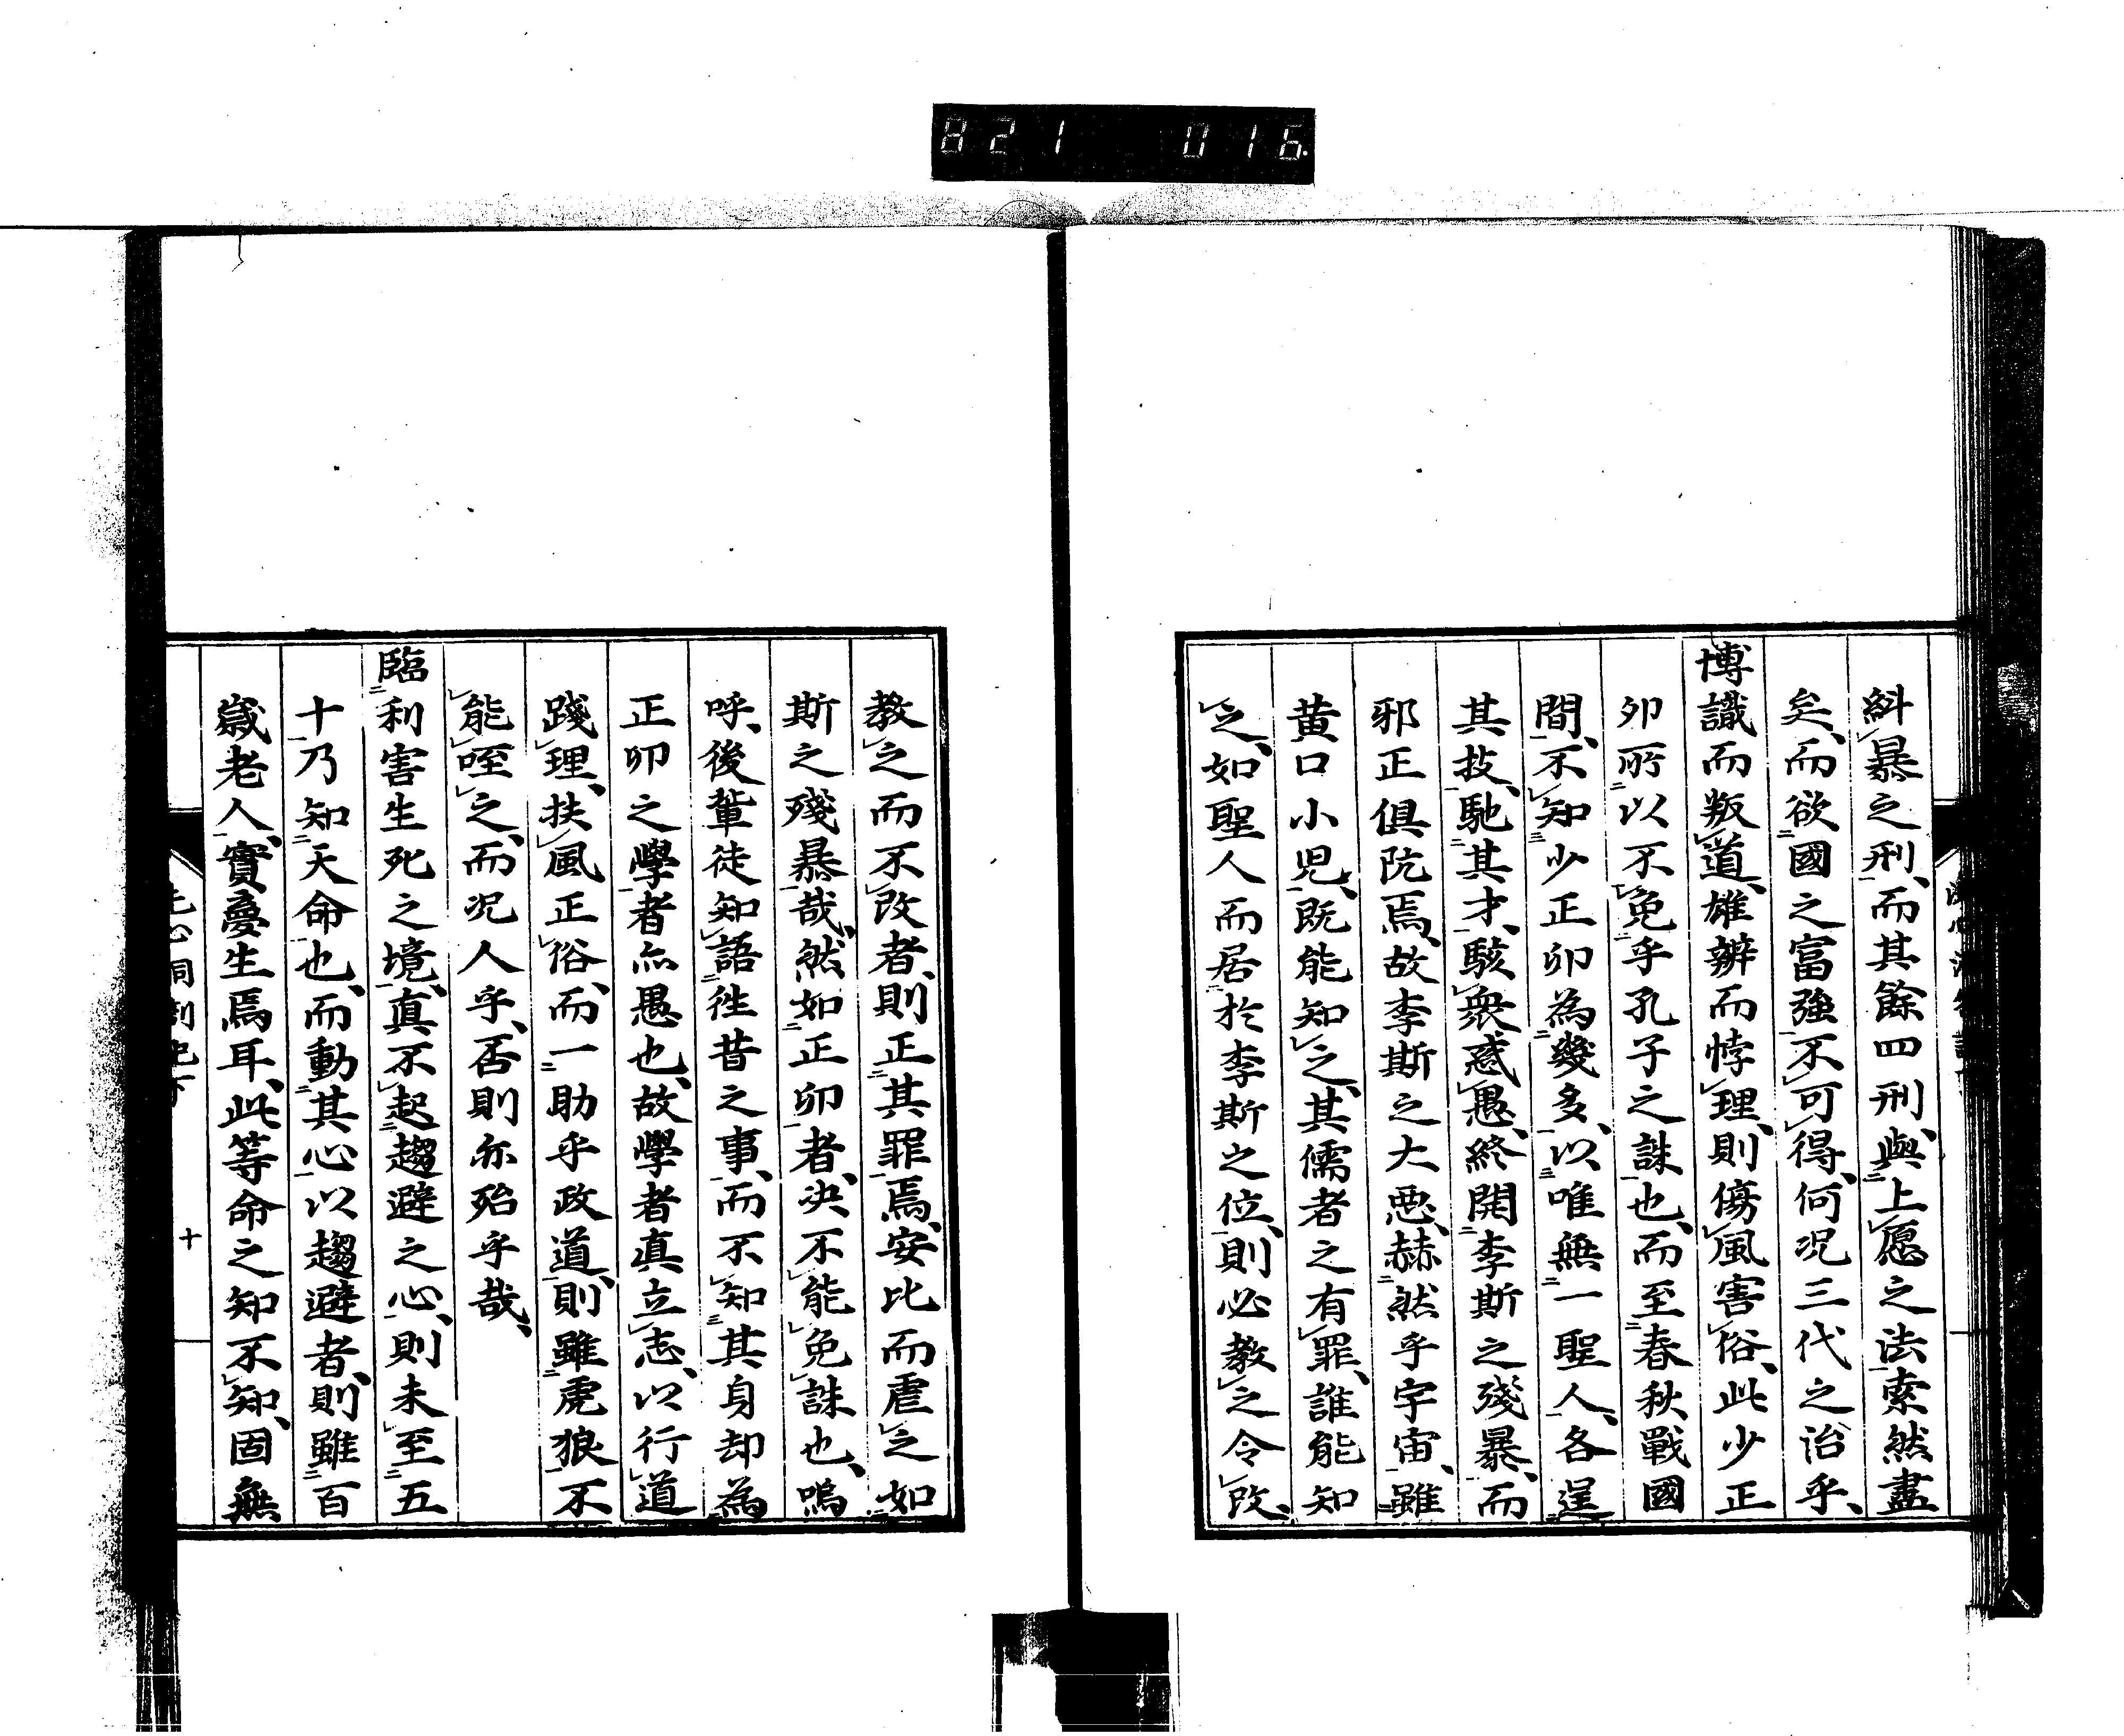 821 016.
糾暴之刑、而其餘四刑、與上愿之法、索然盡
矣、而欲國之富強、不可得、何況三代之治乎、
博識而叛道、雄辨而悖理、則傷風害俗、此少正
卯所以不免乎孔子之誅也、而至春秋戰國
間、不知少正卯為幾多、以唯無一聖人、各逞
其技、馳其才、駭衆惑愚、終開李斯之殘暴、而
邪正俱阬焉、故李斯之大惡、赫然乎宇宙、雖
黄口小児、既能知之、其儒者之有罪、誰能知
之、如聖人而居於李斯之位、則必教之令改、
教之而不改者、則正其罪焉、安比而虐之如
斯之殘暴哉、然如正卯者、決不能免誅也、嗚
呼、後輩徒知語徃昔之事、而不知其身却為
正卯之學者亦愚也、故學者真立志、以行道
踐理、扶風正俗、而一助乎政道、則雖虎狼不
能咥之、而况人乎、否則亦殆乎哉、
臨利害生死之境、真不起趨避之心、則未至五
十乃知天命也、而動其心以趨避者、則雖百
歳老人、實夢生焉耳、此等命之知不知、固無
十